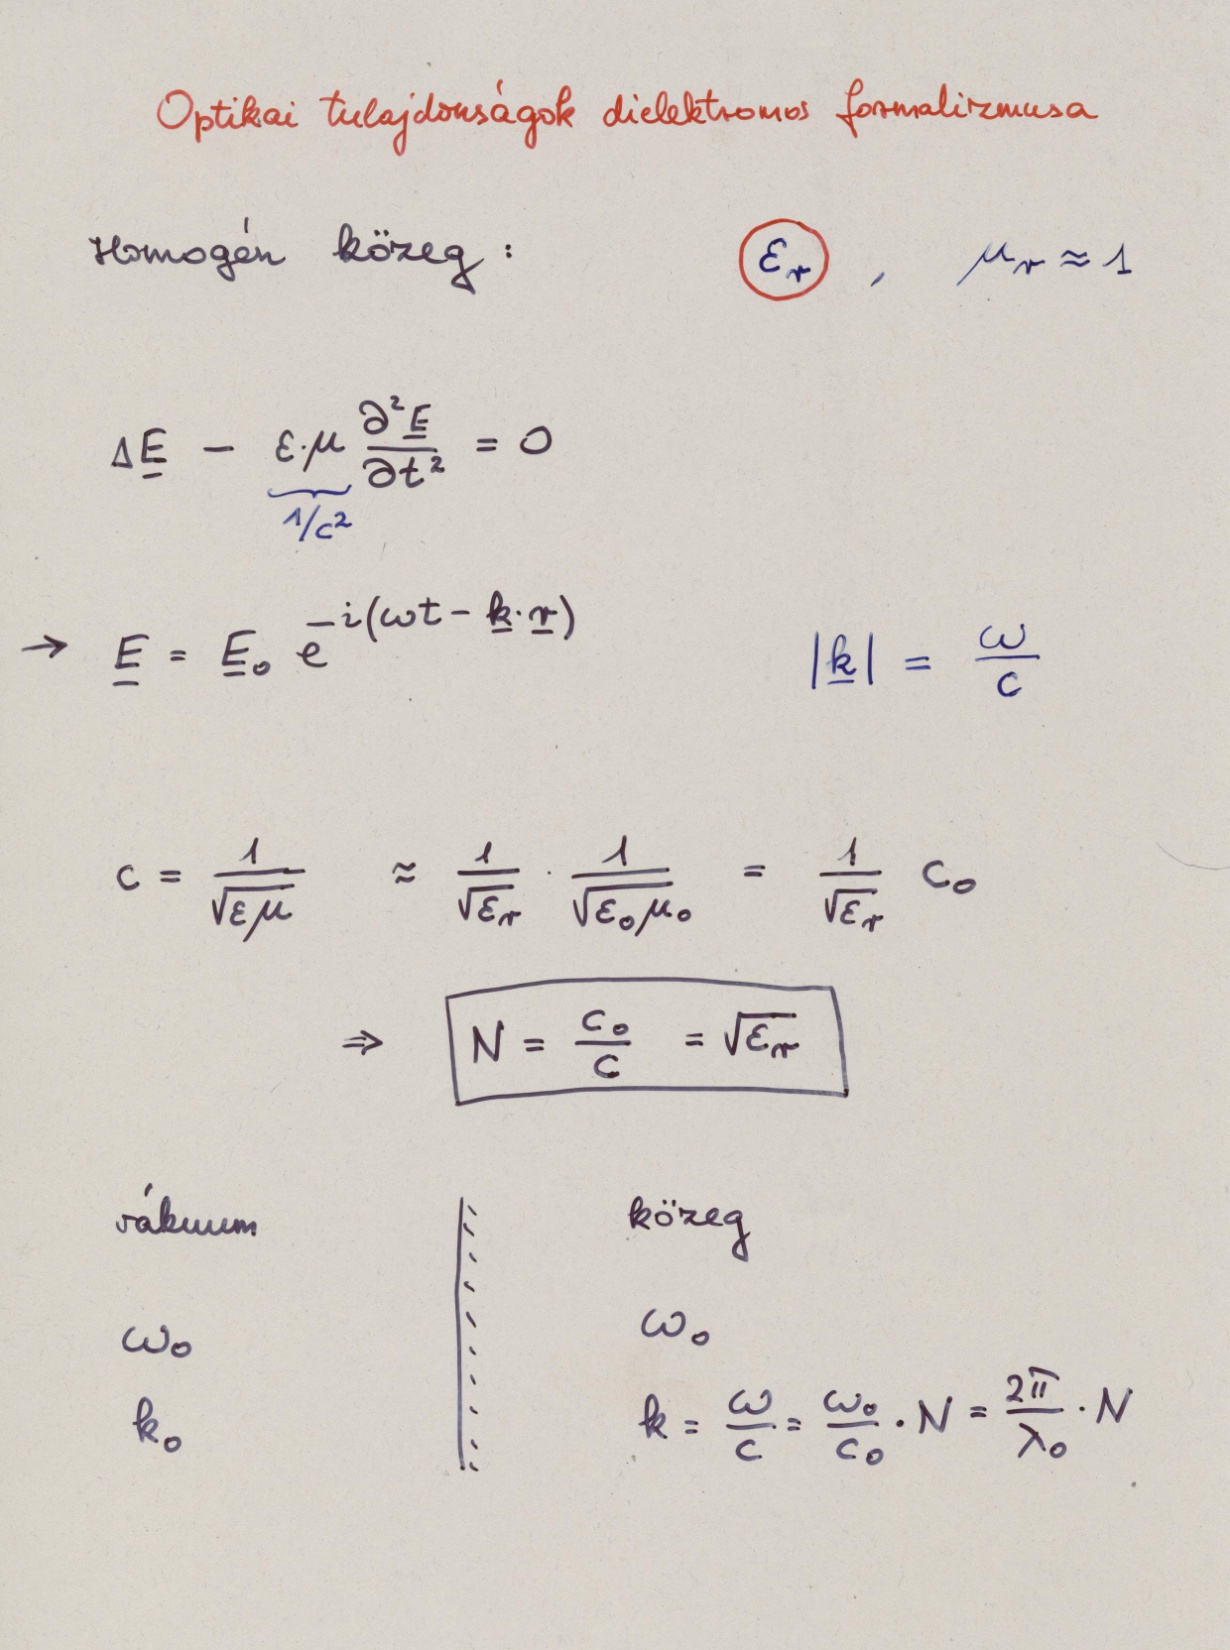 Optikai tulajdonságok dielektromos formalizmusa
Homogén közeg : εᵣ , μᵣ ≈ 1
ΔE − ε·μ ∂²E/∂t² = 0
1/c²
→ E = E₀ e^{−i(ωt − k·r)} |k| = ω/c
c = 1/√(εμ) ≈ 1/√εᵣ · 1/√(ε₀μ₀) = 1/√εᵣ c₀
⇒ N = c₀/c = √εᵣ
vákuum közeg
ω₀ ω₀
k₀ k = ω/c = ω₀/c₀ · N = 2π/λ₀ · N